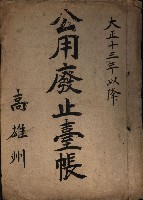 大正十三年以降
公用廢止臺帳
高雄州